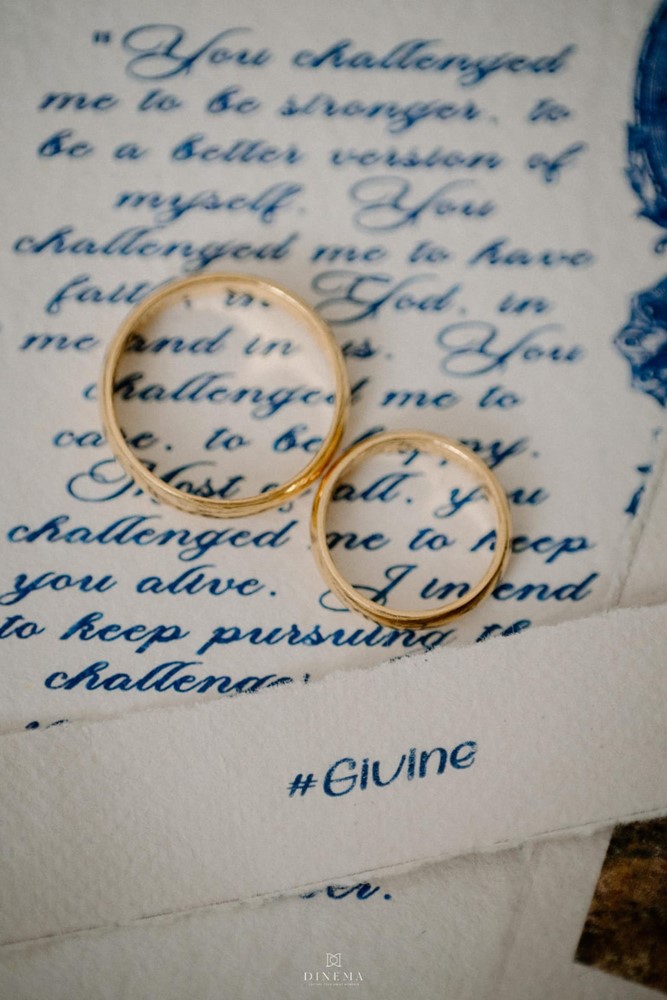 "You challenged
me to be stronger, to
be a better version of
myself. You
challenged me to have
faith in God, in
me and in us. You
challenged me to
care, to be happy.
Most of all, you
challenged me to keep
you alive. I intend
to keep pursuing
challenge
#Givine
DINEMA